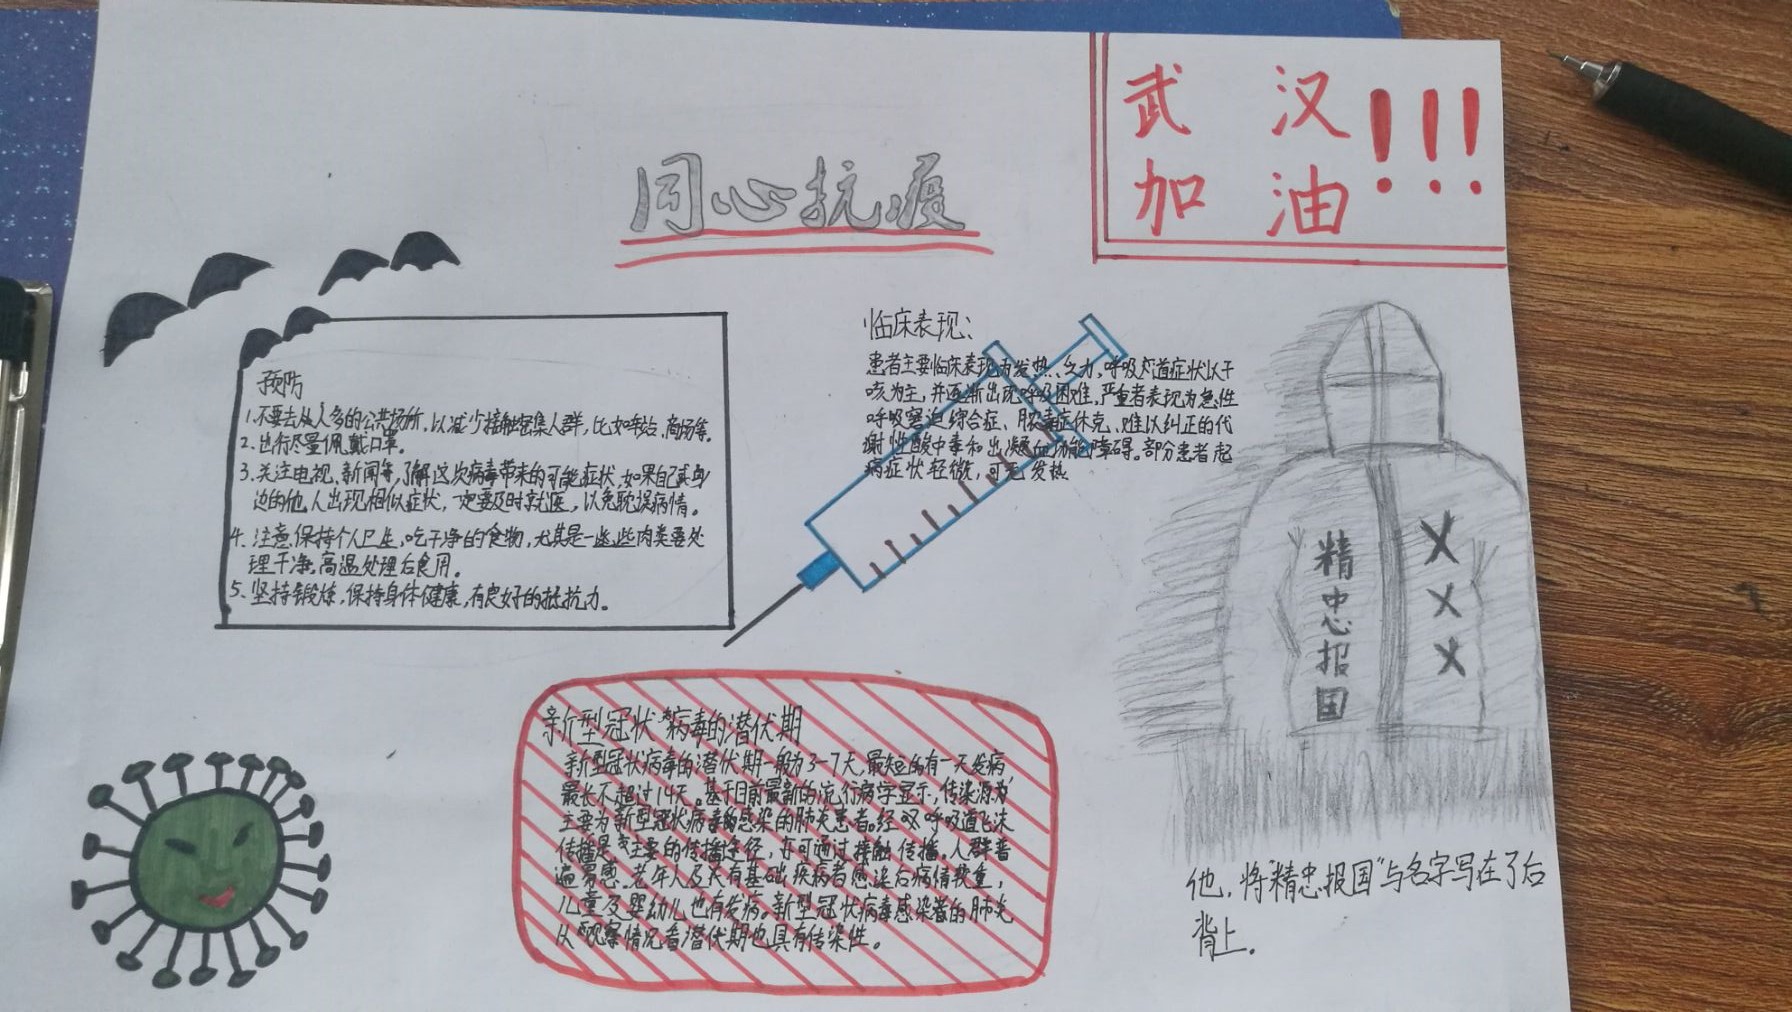 武 汉 !!!
加 油
同心抗疫
预防
1.不要去人多的公共场所,以减少接触密集人群,比如车站、商场等。
2.出行尽量佩戴口罩。
3.关注电视、新闻等,了解这次病毒带来的可能症状,如果自己或身
边的他人出现相似症状,一定要及时就医,以免耽误病情。
4.注意保持个人卫生,吃干净的食物,尤其是一些些肉类要处
理干净,高温处理后食用。
5.坚持锻炼,保持身体健康,有良好的抵抗力。
临床表现:
患者主要临床表现为发热、乏力,呼吸道症状以干
咳为主,并逐渐出现呼吸困难,严重者表现为急性
呼吸窘迫综合症、脓毒症休克、难以纠正的代
谢性酸中毒和出凝血功能障碍。部分患者起
病症状轻微,可无发热
新型冠状病毒的潜伏期
新型冠状病毒的潜伏期一般为3-7天,最短的有一天发病
最长不超过14天。基于目前最新的流行病学显示,传染源为
主要为新型冠状病毒感染的肺炎患者。经呼吸道飞沫
传播是主要的传播途径,亦可通过接触传播。人群普
遍易感。老年人及有基础疾病者感染后病情较重,
儿童及婴幼儿也有发病。新型冠状病毒感染者的肺炎
从观察情况看潜伏期也具有传染性。
精忠报国
XXX
他,将“精忠报国”与名字写在了后
背上。